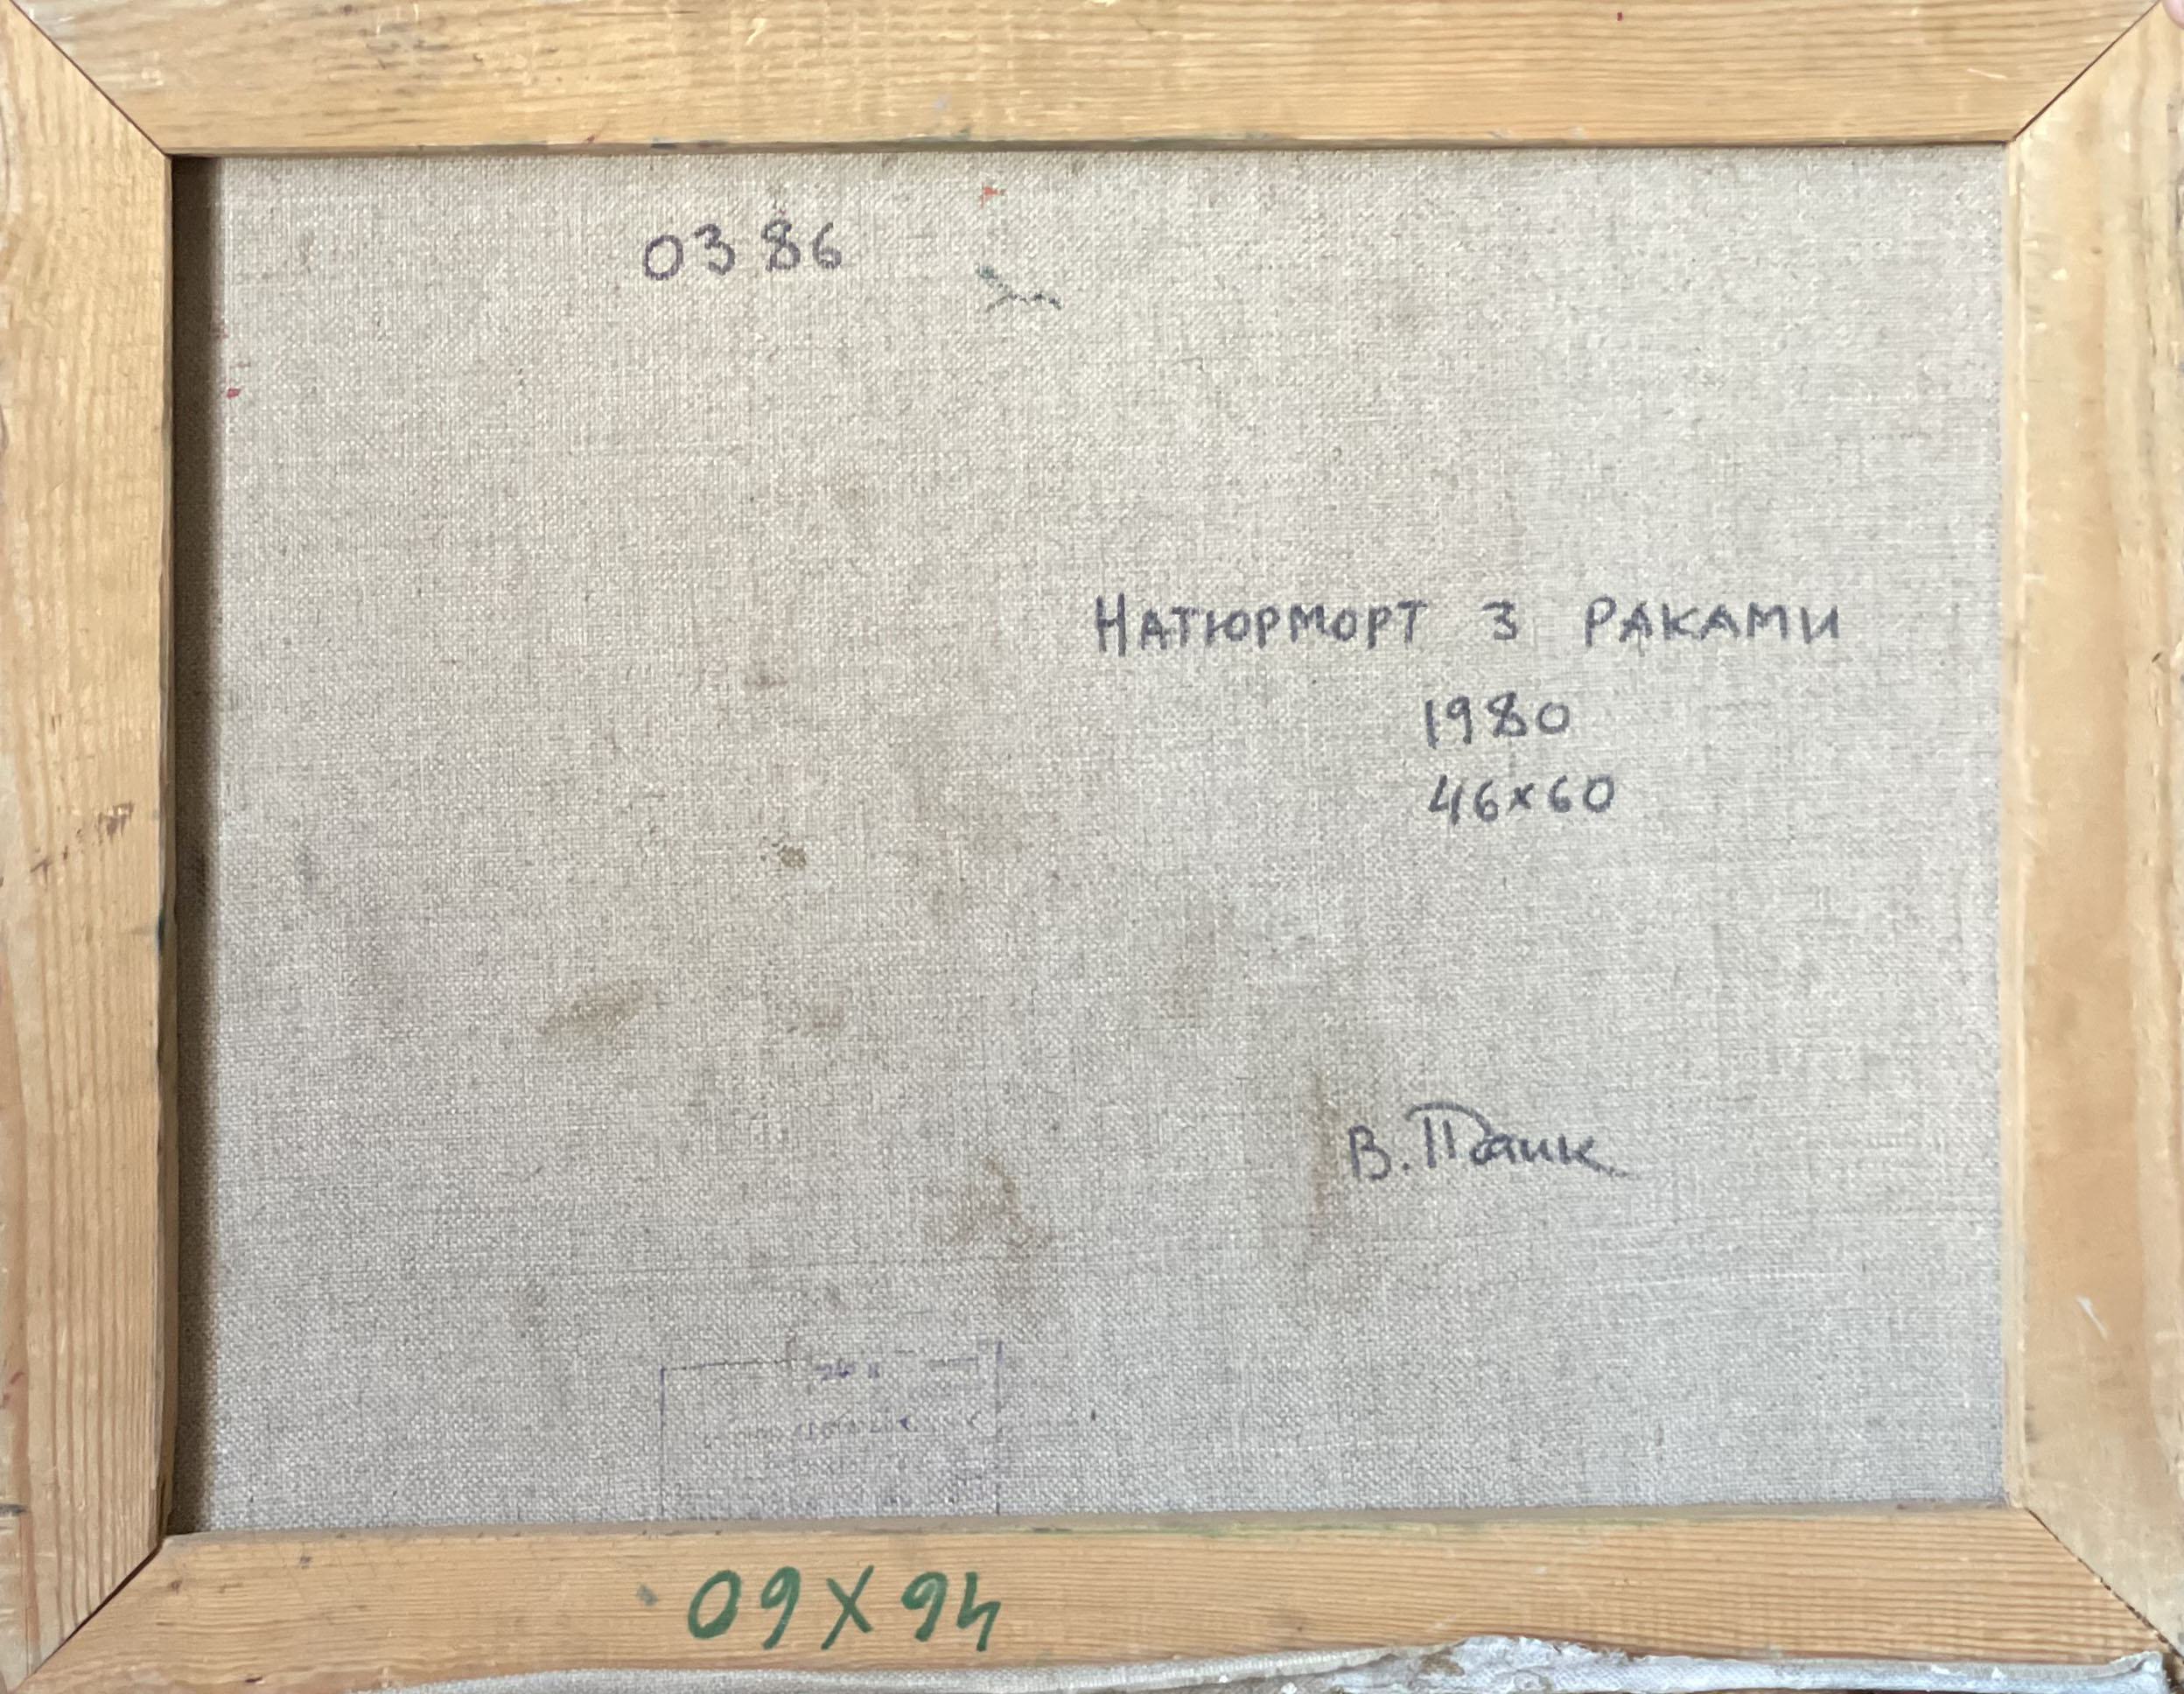 0386
Натюрморт з раками
1980
46x60
В. Паик
46X60